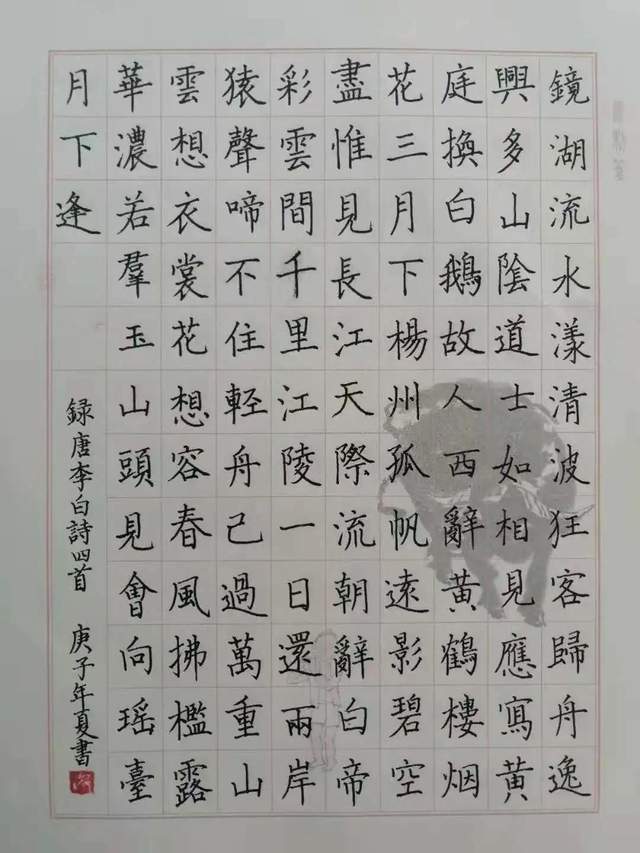 鏡湖流水漾清波狂客歸舟逸
興多山陰道士如相見應寫黃
庭換白鵝故人西辭黃鶴樓烟
花三月下楊州孤帆遠影碧空
盡惟見長江天際流朝辭白帝
彩雲間千里江陵一日還兩岸
猿聲啼不住輕舟已過萬重山
雲想衣裳花想容春風拂檻露
華濃若羣玉山頭見會向瑤臺
月下逢
録唐李白詩四首 庚子年夏書